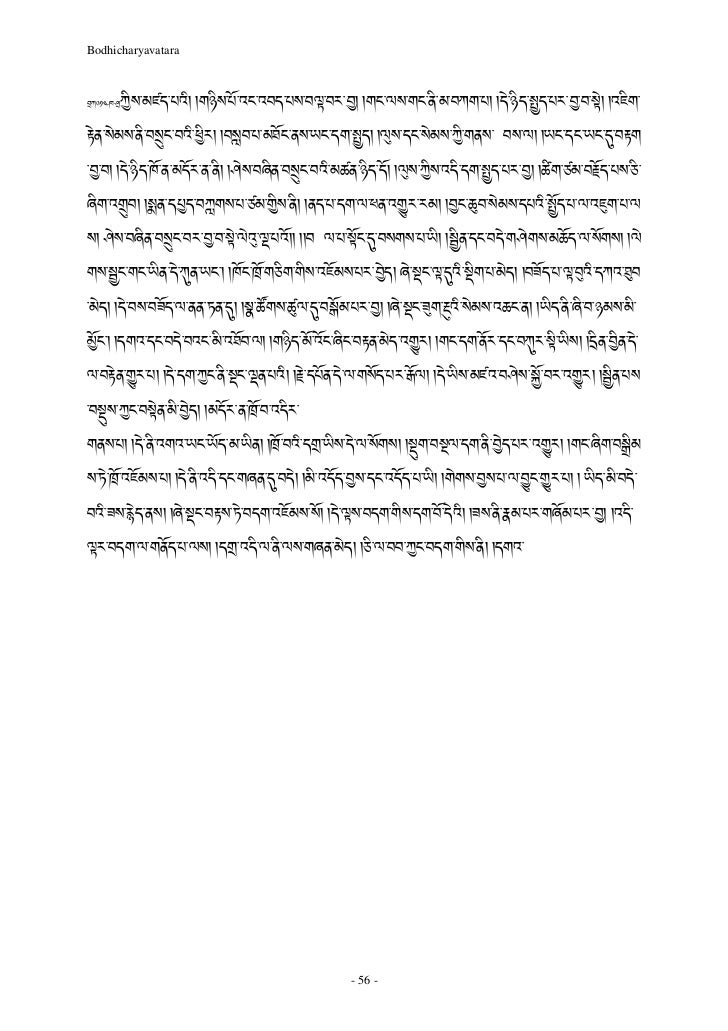 Bodhicharyavatara
ཀྱིས་མཛད་པའི། །གཉིས་པོ་འང་འབད་པས་བལྟ་བར་བྱ། །གང་ལས་གང་ནི་མ་བཀག་པ། །དེ་ཉིད་སྤྱད་པར་བྱ་བ་སྟེ། །འཇིག་
རྟེན་སེམས་ནི་བསྲུང་བའི་ཕྱིར། །བསླབ་པ་མཐོང་ནས་ཡང་དག་སྤྱད། །ལུས་དང་སེམས་ཀྱི་གནས་ བས་ལ། །ཡང་དང་ཡང་དུ་བརྟག
་བྱ་བ། །དེ་ཉིད་ཁོ་ན་མདོར་ན་ནི། །ཤེས་བཞིན་བསྲུང་བའི་མཚན་ཉིད་དོ། །ལུས་ཀྱིས་འདི་དག་སྤྱད་པར་བྱ། །ཚིག་ཙམ་བརྗོད་པས་ཅི་
ཞིག་འགྲུབ། །སྨན་དཔྱད་བཀླགས་པ་ཙམ་གྱིས་ནི། །ནད་པ་དག་ལ་ཕན་འགྱུར་རམ། །བྱང་ཆུབ་སེམས་དཔའི་སྤྱོད་པ་ལ་འཇུག་པ་ལ
ས། ཤེས་བཞིན་བསྲུང་བར་བྱ་བ་སྟེ་ལེའུ་ལྔ་པའོ།། །།བ ལ་པ་སྟོང་དུ་བསགས་པ་ཡི། །སྦྱིན་དང་བདེ་གཤེགས་མཆོད་ལ་སོགས། །ལེ
གས་སྤྱད་གང་ཡིན་དེ་ཀུན་ཡང་། །ཁོང་ཁྲོ་གཅིག་གིས་འཇོམས་པར་བྱེད། ཞེ་སྡང་ལྟ་བུའི་སྡིག་པ་མེད། །བཟོད་པ་ལྟ་བུའི་དཀའ་ཐུབ
་མེད། །དེ་བས་བཟོད་ལ་ནན་ཏན་དུ། །སྣ་ཚོགས་ཚུལ་དུ་བསྒོམ་པར་བྱ། །ཞེ་སྡང་ཟུག་རྔུའི་སེམས་འཆང་ན། །ཡིད་ནི་ཞི་བ་ཉམས་མི་
མྱོང་། །དགའ་དང་བདེ་བའང་མི་འཐོབ་ལ། །གཉིད་མི་འོང་ཞིང་བརྟན་མེད་འགྱུར། །གང་དག་ནོར་དང་བཀུར་སྟི་ཡིས། །དྲིན་བྱིན་དེ་
ལ་བརྟེན་གྱུར་པ། །དེ་དག་ཀྱང་ནི་སྡང་ལྡན་པའི། །རྗེ་དཔོན་དེ་ལ་གསོད་པར་རྒོལ། །དེ་ཡིས་མཛའ་བཤེས་སྐྱོ་བར་འགྱུར། །སྦྱིན་པས
་བསྡུས་ཀྱང་བསྟེན་མི་བྱེད། །མདོར་ན་ཁྲོ་བ་འདིར་
གནས་པ། །དེ་ནི་འགའ་ཡང་ཡོད་མ་ཡིན། །ཁྲོ་བའི་དགྲ་ཡིས་དེ་ལ་སོགས། །སྡུག་བསྔལ་དག་ནི་བྱེད་པར་འགྱུར། །གང་ཞིག་བསྒྲིམ
ས་ཏེ་ཁྲོ་འཇོམས་པ། །དེ་ནི་འདི་དང་གཞན་དུ་བདེ། །མི་འདོད་བྱས་དང་འདོད་པ་ཡི། །གེགས་བྱས་པ་ལ་བྱུང་གྱུར་པ། ། ཡིད་མི་བདེ་
བའི་ཟས་རྙེད་ནས། །ཞེ་སྡང་བརྟས་ཏེ་བདག་འཇོམས་སོ། །དེ་ལྟས་བདག་གིས་དགྲ་བོ་དེའི། །ཟས་ནི་རྣམ་པར་གཞོམ་པར་བྱ། །འདི་
ལྟར་བདག་ལ་གནོད་པ་ལས། །དགྲ་འདི་ལ་ནི་ལས་གཞན་མེད། །ཅི་ལ་བབ་ཀྱང་བདག་གིས་ནི། །དགའ་
- 56 -